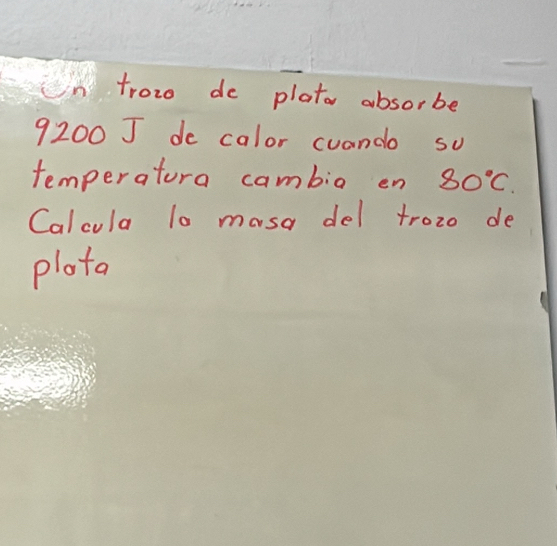 Un trozo de plata absorbe
9200 J de calor cuando su
temperatura cambia en 80°C.
Calcula la masa del trozo de
plata